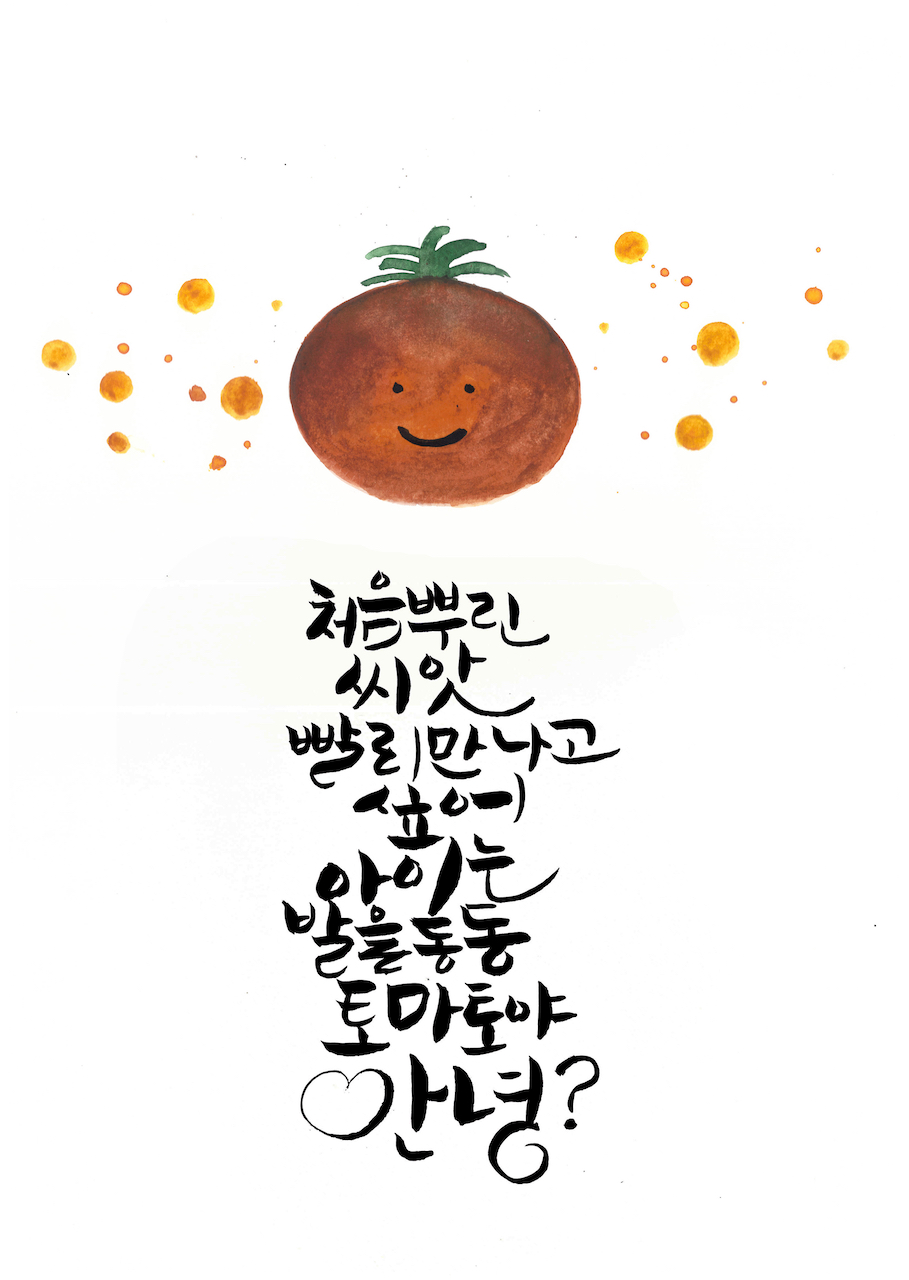 처음뿌린
씨앗
빨리만나고
싶어
아이는
발을동동
토마토야
안녕?